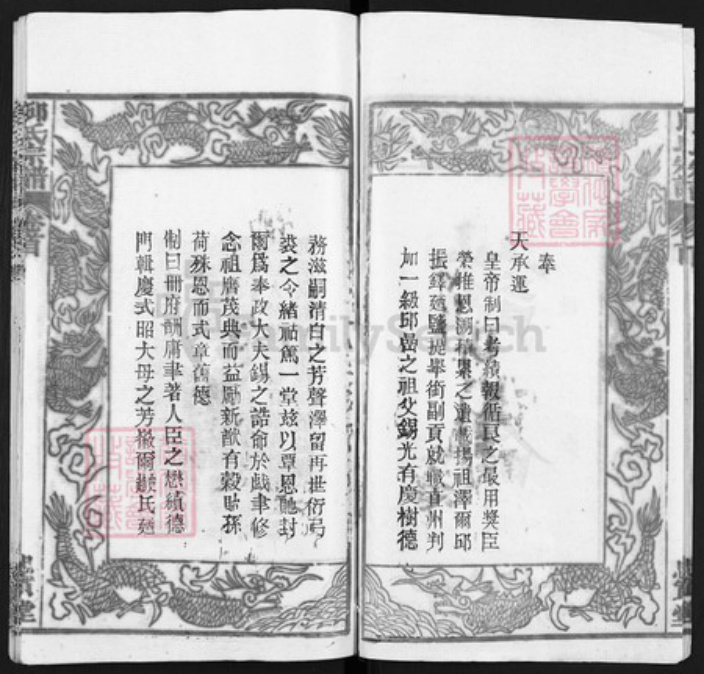 奉
天承運
皇帝制曰考績報循良之最用獎臣
榮推恩溯積累之遺載揚祖澤爾邱
振鐸廼鹽提舉銜副貢就職直州判
加一級邱嵒之祖父錫光有慶樹德
務滋嗣清白之芳聲澤留再世衍弓
裘之令緒祜篤一堂茲以覃恩馳封
爾爲奉政大夫錫之誥命於戲聿修
念祖膺茂典而益勵新猷有穀貽孫
荷殊恩而式章舊德
制曰冊府酬庸聿著人臣之懋績德
門輯慶式昭大母之芳徽爾 氏廼
邱氏宗譜
卷首
FamilySearch